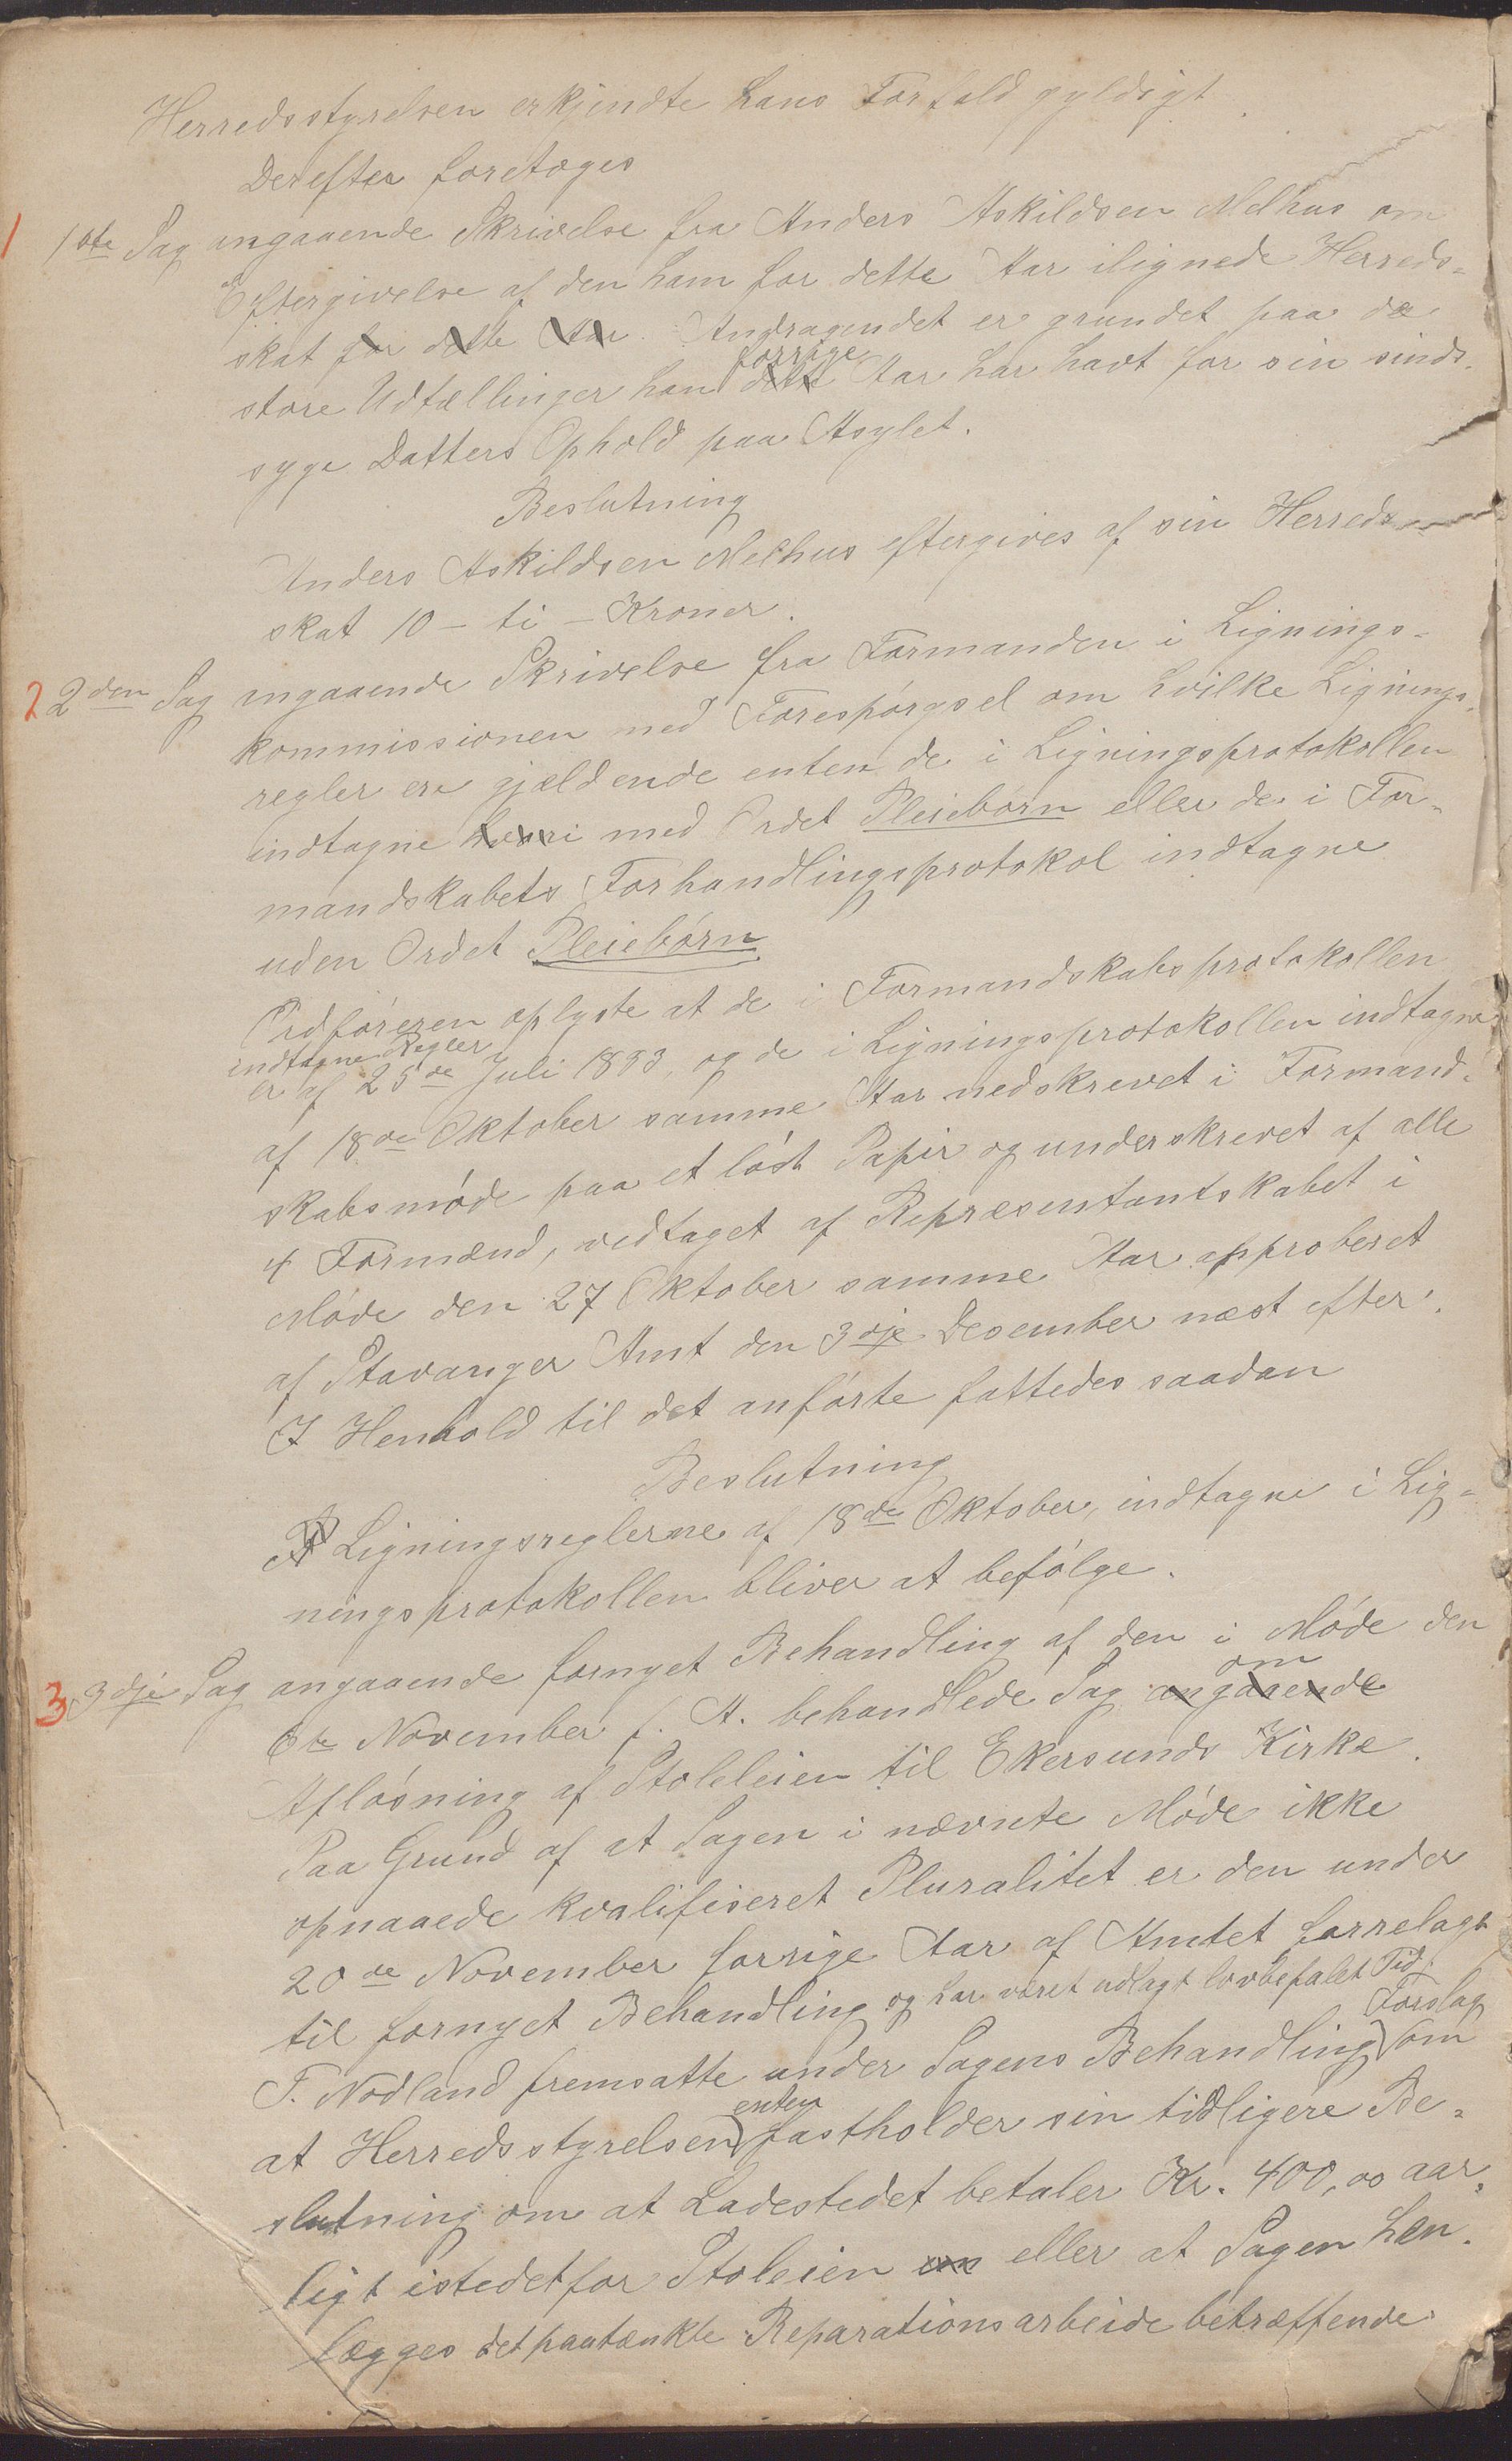 Herredsstyrelsen erkjendte hans Forfald gyldigt
Derefter foretoges
1 1ste Sag angaaende Skrivelse fra Anders Askildsen Melhus om
Eftergivelse af den ham for dette Aar ilignede Herreds-
skat for dette Aar. Andragendet er grundet paa de
forrige
store Udtællinger han dette Aar har havt for sin sinds-
syge Datters Ophold paa Asylet.
Beslutning
Anders Askildsen Melhus eftergives af sin Herreds
skat 10 - ti - Kroner.
2 2den Sag angaaende Skrivelse fra Formanden i Lignings-
kommissionen med Forespørgsel om hvilke Lignings-
regler er gjældende enten de i Ligningsprotokollen
indtagne heri med Ordet Pleiebørn eller de i For-
mandskabets Forhandlingsprotokol indtagne
uden Ordet Pleiebørn
Ordføreren oplyste at de i Formandskabsprotokollen
indtagne Regler
er af 25de Juli 1883, og de i Ligningsprotokollen indtagne
af 18de Oktober samme Aar nedskrevet i Formand-
skabsmøde paa et løst Papir og underskrevet af alle
4 Formænd, vedtaget af Repræsentantskabet i
Møde den 27 Oktober samme Aar approberet
af Stavanger Amt den 3dje Desember næst efter.
I Henhold til det anførte fattedes saadan
Beslutning
Ligningsreglerne af 18de Oktober, indtagne i Lig-
ningsprotokollen bliver at befølge.
3 3dje Sag angaaende fornyet Behandling af den i Møde den
om
6te November f. A. behandlede Sag angaaende
Afløsning af Stoleleien til Ekersunds Kirke.
Paa Grund af at Sagen i nævnte Møde ikke
opnaaede kvalifiseret Pluralitet er den under
20de November forrige Aar af Amtet forrelagt
til fornyet Behandling og har været udlagt lovbefalet Tid.
Forslag
T. Nodland fremsatte under Sagens Behandling som
enten
at Herredsstyrelsen fastholder sin tidligere Be-
slutning om at Ladestedet betaler Kr. 400,00 aar-
ligt istedetfor Stoleien om eller at Sagen hen-
lægges det paatænkte Reparationsarbeide betræffende